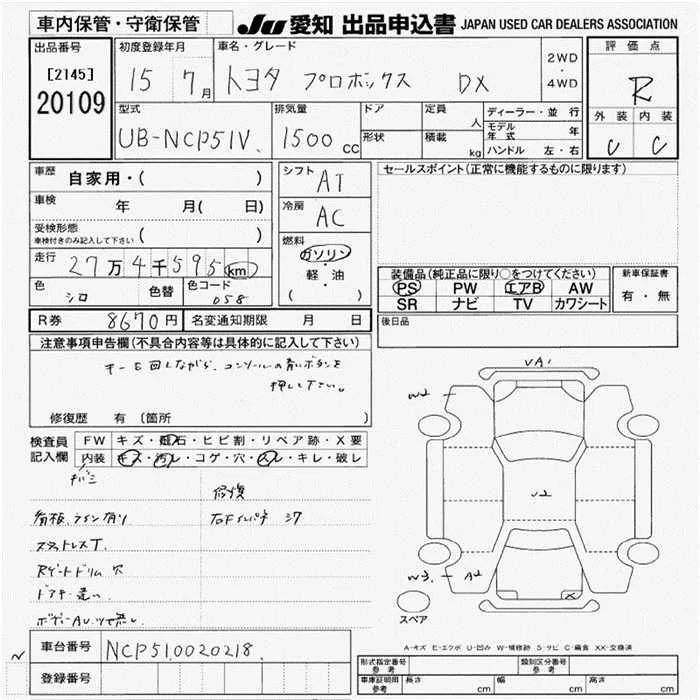 車内保管・守衛保管
JU 愛知 出品申込書 JAPAN USED CAR DEALERS ASSOCIATION
出品番号
[2145]
20109
初度登録年月
15 7月
車名・グレード
トヨタ プロボックス DX
2WD
・
4WD
評価点
R
外装 内装
C C
型式
UB-NCP51V
排気量
1500 cc
ドア
形状
定員
人
積載
kg
ディーラー・並行
モデル年式 年
ハンドル 左・右
車歴
自家用・( )
車検
年 月( 日)
受検形態
車検付きのみ記入して下さい ( )
走行
27万4千595 km
色
シロ
色替
色コード
058
シフト
AT
冷房
AC
燃料
ガソリン
・
軽・油
( )
セールスポイント(正常に機能するものに限ります)
装備品(純正品に限り○をつけてください)
PS PW エアB AW
SR ナビ TV カワシート
新車保証書
有・無
後日品
R券 8670円 名変通知期限 月 日
注意事項申告欄(不具合内容等は具体的に記入して下さい)
キーを回しながら、コンソールの青いボタンを
押して下さい。
修復歴 有 〔箇所 〕
検査員
記入欄
FW キズ・飛石・ヒビ割・リペア跡・X要
内装 キズ・汚レ・コゲ・穴・スレ・キレ・破レ
看板、ライン有り
スタットレスT.
Rゲートドリム 穴
ドアキー違い
修復
右Fインパネ
VA1
W2
U2
W3
A2
X
スペア
A-キズ E-エクボ U-凹み W-補修跡 S-サビ C-腐食 XX-交換済
車台番号
NCP51.0020218
登録番号
型式指定番号
参考
類別区分番号
参考
車庫証明用
参考
長さ cm 幅 cm 高さ cm